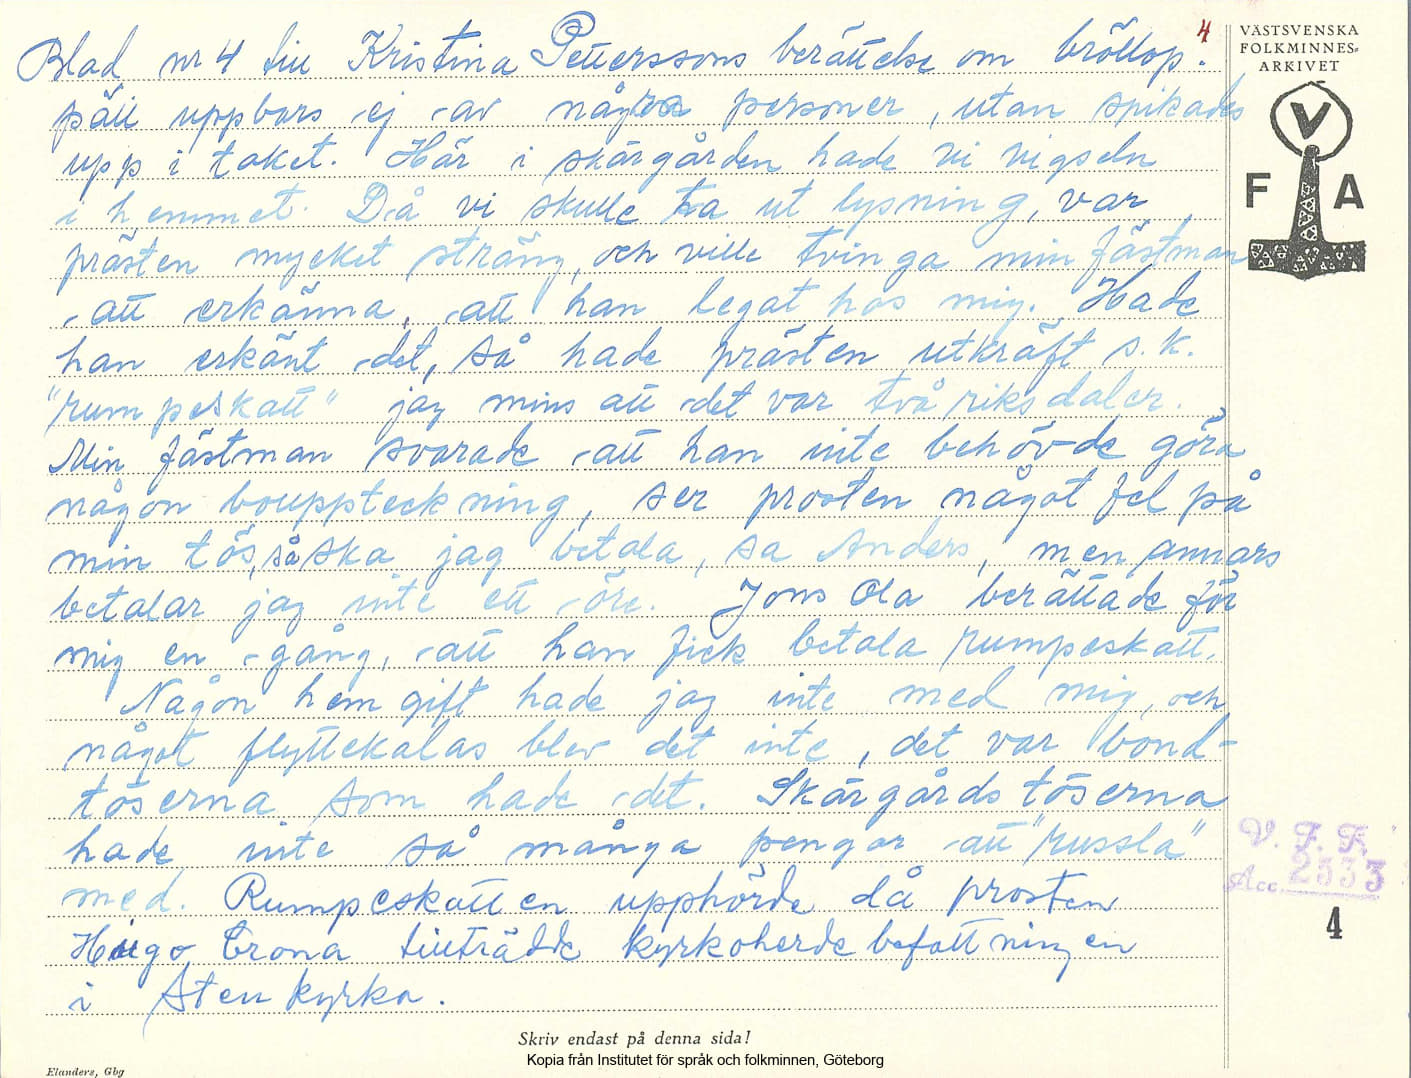 4
Blad nr 4 till Kristina Petterssons berättelse om bröllop.
päll uppbars ej av några personer, utan spikades
upp i taket. Här i skärgården hade vi vigseln
i hemmet. Då vi skulle ta ut lysning, var
prästen mycket sträng, och ville tvinga min fästman
att erkänna, att han legat hos mig. Hade
han erkänt det, så hade prästen utkräft s.k.
"rumpeskatt" jag mins att det var två riksdaler.
Min fästman svarade att han inte behövde göra
någon bouppteckning, ser prosten något fel på
min tös, så ska jag betala, sa Anders, men annars
betalar jag inte ett öre. Jons Ola berättade för
mig en gång, att han fick betala rumpeskatt.
Någon hemgift hade jag inte med mig, och
något flyttekalas blev det inte, det var bond-
töserna som hade det. Skärgårdstöserna
hade inte så många pengar att "russla"
med. Rumpeskatten upphörde då prosten
Hugo Crona tillträdde kyrkoherdebefattningen
i Stenkyrka.
VÄSTSVENSKA
FOLKMINNES-
ARKIVET
V
F A
V. F. F.
Acc. 2333
4
Skriv endast på denna sida!
Kopia från Institutet för språk och folkminnen, Göteborg
Elanders, Gbg